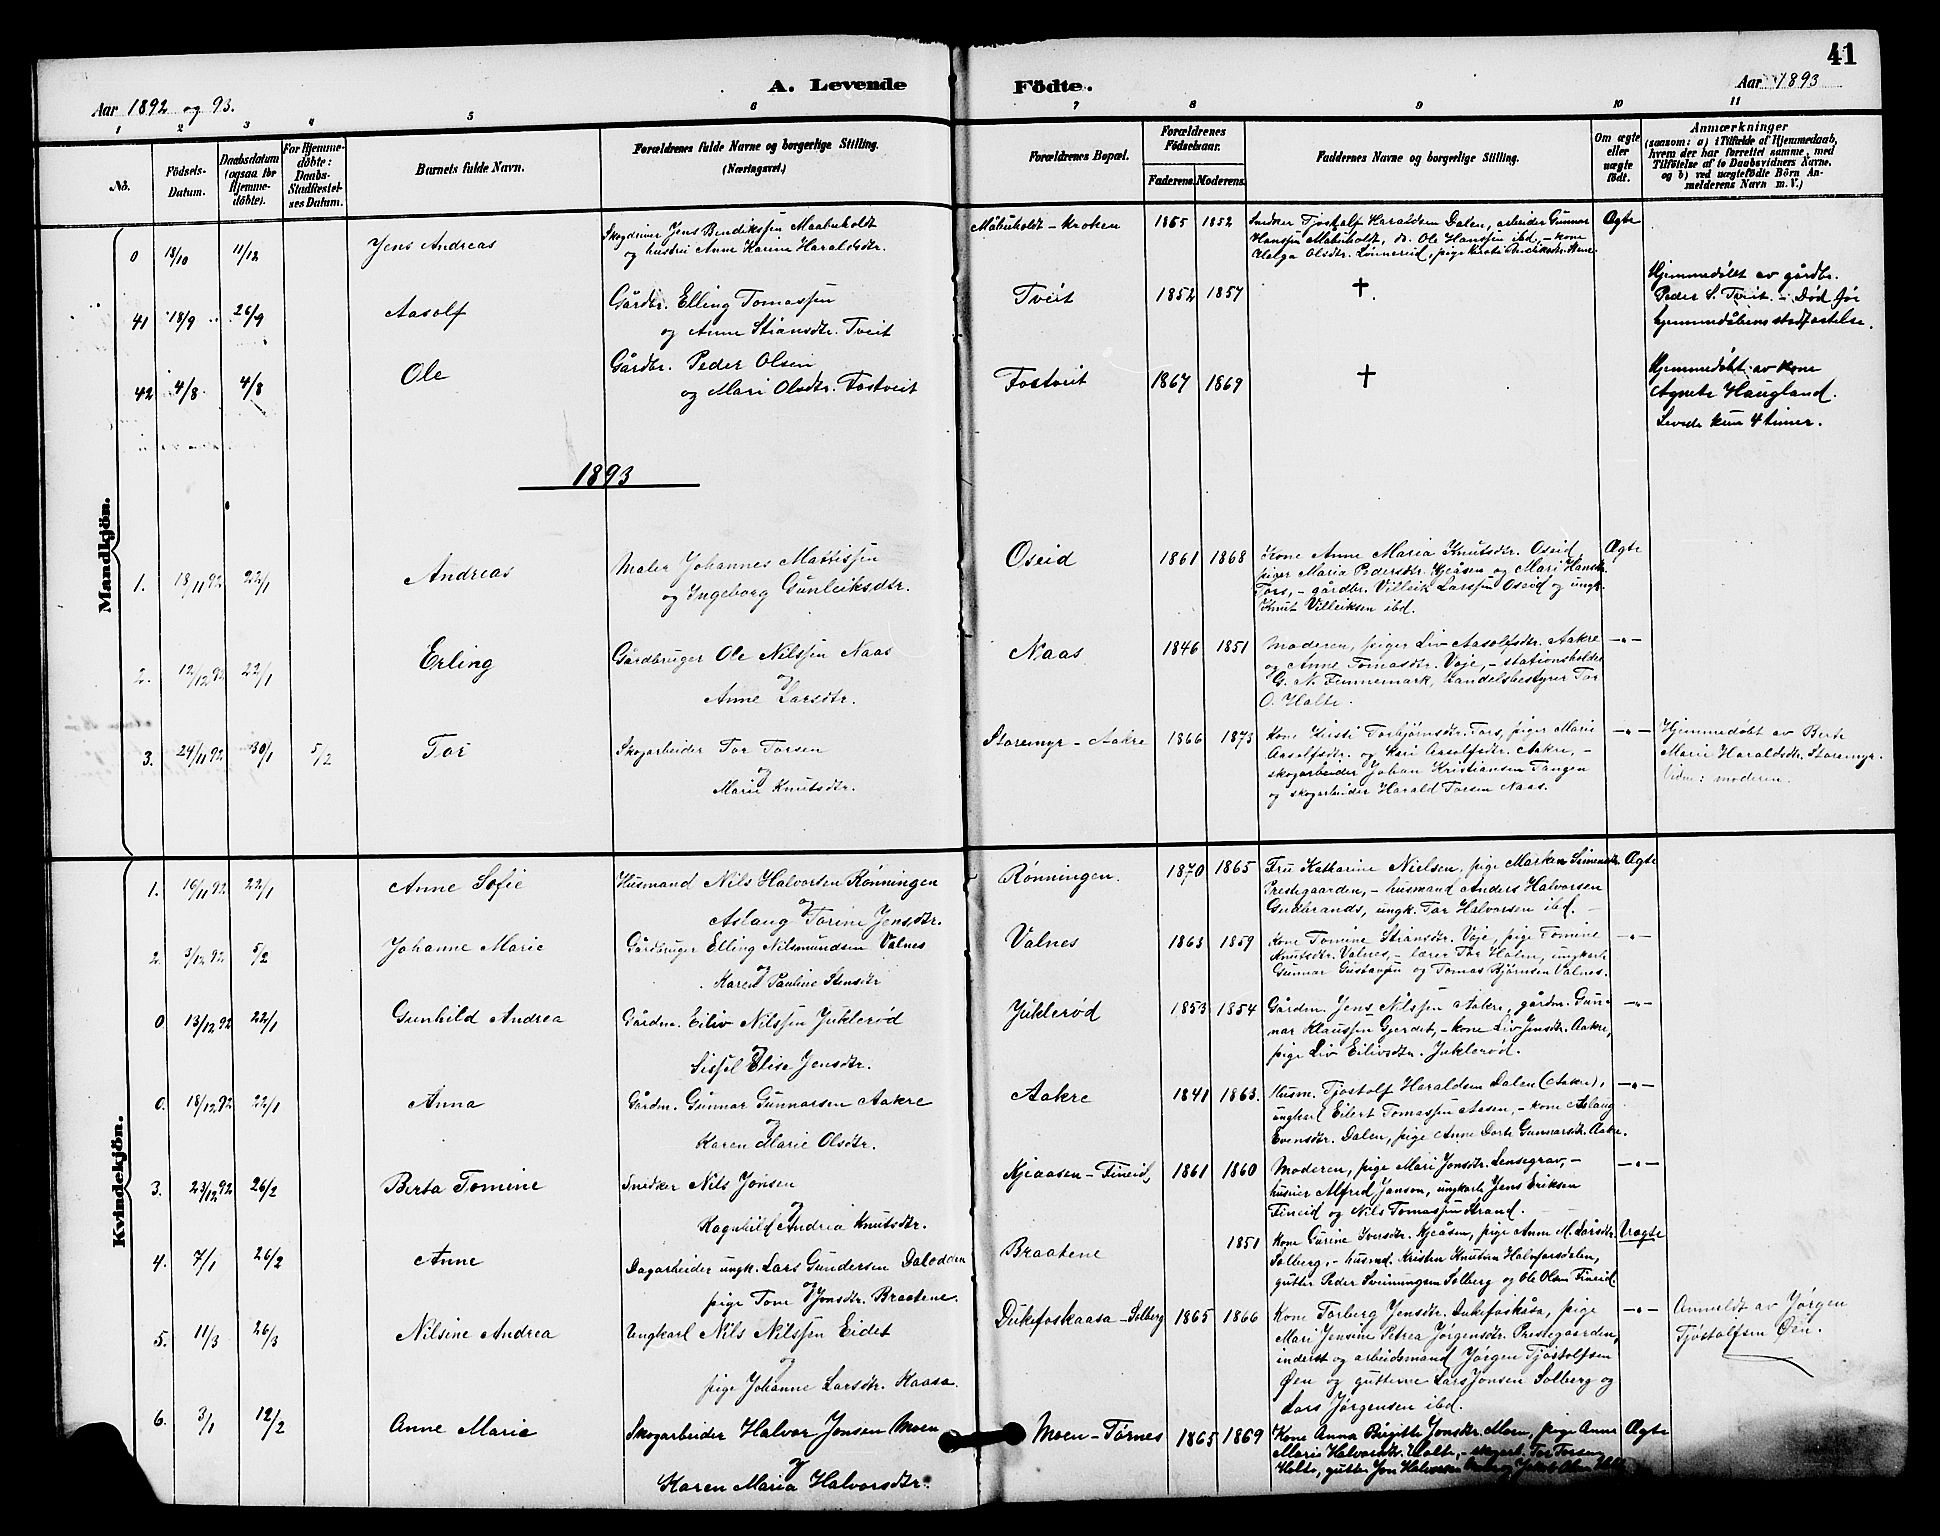 41
A. Levende Födte.
Aar 1892 og 93.
Aar 1893
1 2 3 4 5 6 7 8 9 10 11
No.
Födsels-Datum.
Daabsdatum (ogsaa for Hjemmedöbte).
For Hjemmedöbte: Daabs-Stadfæstelses Datum.
Barnets fulde Navn.
Forældrenes fulde Navne og borgerlige Stilling. (Næringsvei.)
Forældrenes Bopæl.
Forældrenes Födselsaar.
Faderens. Moderens.
Faddernes Navne og borgerlige Stilling.
Om ægte eller uægte födt.
Anmærkninger
(saasom: a) i Tilfælde af Hjemmedaab, hvem der har forrettet samme, med Tilföielse af to Daabsvidners Navne. og b) ved uægtefödte Börn Anmelderens Navn m. V.)
Mandkjön.
0 18/10 11/12 Jens Andreas
Skogdriver Jens Bendikssen Maabuholdt
og hustru Anne Karine Haraldsdtr.
Måbuholdt - kroken 1865 1852
Snedker Tjostolf Haraldsen Dalen, arbeider Gunnar
Hanssen Mabuholdt, do. Ole Hanssen ibd, - kone
Helga Olsdtr. Lønnereid, pige
Ægte
41 18/9 26/9 Aasolf
Gårdbr. Elling Tomassen
og Anne Stiansdtr. Tveit
Tveit 1852 1857 †
Hjemmedøbt av gårdbr.
Peder S. Tveit. - Død før
hjemmedåbens stadfæstelse.
42 4/8 4/8 Ole
Gårdbr. Peder Olsen
og Mari Olsdtr. Fostveit
Fostveit 1867 1869 †
Hjemmedøbt av kone
Agnete Haugland.
Levede kun 4 timer.
1893
1. 18/11 92 22/1 Andreas
Maler Johannes Mattissen
og Ingeborg Gunleiksdtr.
Oseid 1861 1868
Kone Anne Maria Knutsdtr. Oseid,
piger Maria Pedersdtr. Kjeåsen og Mari Hansdtr.
Tors, - gårdbr. Villeik Larssen Oseid og ungk.
Knut Villeiksen ibd.
Ægte
2. 12/12 92 22/1 Erling
Gårdbruger Ole Nilssen Naas
og
Anne Larsdtr.
Naas 1846 1851
Moderen, piger Liv Aasolfsdtr. Aakre
og Anne Tomasdtr. Voje, - stationsholder
G. N. Finnemark, Handelsbestyrer Tor
O. Holte.
-"-
3. 24/11 92 30/1 5/2 Tor
Skogarbeider Tor Torsen
og
Marie Knutsdtr.
Storemyr - Aakre 1866 1873
Kone Kirsti Torbjørnsdtr. Tors, piger Marie
Aasolfsdtr. og Kari Aasolfsdtr. Aakre, -
skogarbeider Johan Kristiansen Tangen
og skogarbeider Harald Torsen Naas.
-"-
Hjemmedøbt av Berte
Marie Haraldsdtr. Storemyr.
Vidne: moderen.
Kvindekjön.
1. 16/11 92 22/1 Anne Sofie
Husmand Nils Halvorsen Rønningen
og
Aslaug Torine Jensdtr.
Rønningen. 1870 1865
Fru Katharine Nielsen, pige Marken Simensdtr.
Prestegaarden, - husmand Anders Halvorsen
Gudbrands, ungk. Tor Halvorsen ibd. -
Ægte
2. 3/12 92 5/2 Johanne Marie
Gårdbruger Elling Nilsmundsen Valnes
og
Karen Pauline Stensdtr
Valnes 1863 1859
Kone Tomine Stiansdtr. Voje, pige Tomine
Knutsdtr. Valnes, - lærer Tor Holm, ungkarle
Gunnar Gustavsen og Tomas Bjørnsen Valnes.
-"-
0 13/12 92 22/1 Gunhild Andrea
Gårdm. Eiliv Nilssen Juklerød
og
Sissel Elise Jensdtr.
Juklerød 1853 1854
Gårdm. Jens Nilssen Aakre, gårdm. Gun-
nar Klaussen Gjerdet, - kone Liv Jensdtr. Aakre,
pige Liv Eilivsdtr. Juklerød.
-"-
0. 18/12 92 22/1 Anna
Gårdm. Gunnar Gunnarsen Aakre
og
Karen Marie Olsdtr.
Aakre 1841 1863.
Husm. Tjostolf Haraldsen Dalen (Aakre),
ungkarl Eilert Tomassen Aasen, - kone Aslaug
Evensdtr. Dalen, pige Anne Dorte Gunnarsdtr. Aakre.
-"-
3. 23/12 92 26/2 Berta Tomine
Snedker Nils Jonsen
og
Ragnhild Andrea Knutsdtr.
Kjeaasen - Fineid, 1861 1860
Moderen, pige Mari Jonsdtr. Lensegrav, -
husier Alfred Janson, ungkarle Jens Eriksen
Fineid og Nils Tomassen Strand.
-"-
4. 7/1 26/2 Anne
Dagarbeider ungk. Lars Gundersen Dalodden
og
pige Tone Jonsdtr. Braatene.
Braatene 1851
Kone Gurine Iversdtr. Kjeåsen, pige Anne M. Larsdtr.
Solberg, - husmd. Kristen Knutsen Halvfarsdalen,
gutter Peder Sveinungsen Solberg og Ole Olsen Fineid.
Uægte
5. 11/3 26/3 Nilsine Andrea
Ungkarl Nils Nilssen Eidet
og
pige Johanne Larsdtr. Kaasa.
Dukefoskaasa - Solberg 1865 1866
Kone Torberg Jensdtr. Dukefoskåsa, pige
Mari Jensine Petrea Jørgensdtr. Prestegaarden,
inderst og arbeidsmand Jørgen Tjøstolfsen
Øen og gutterne Lars Jonsen Solberg og
Lars Jørgensen ibd.
-"-
Anmeldt av Jørgen
Tjøstolfsen Øen.
6. 3/1 12/2 Anne Marie
Skogarbeider Halvor Jonsen Moen
og
Karen Maria Halvorsdtr.
Moen - Tørnes 1865 1869
Kone Anna Birgitte Jonsdtr. Moen, pige Anne
Marie Halvorsdtr. Holte, - skogarb. Tor Torsen
Holte, gutter Jon Halvorsen
Ægte